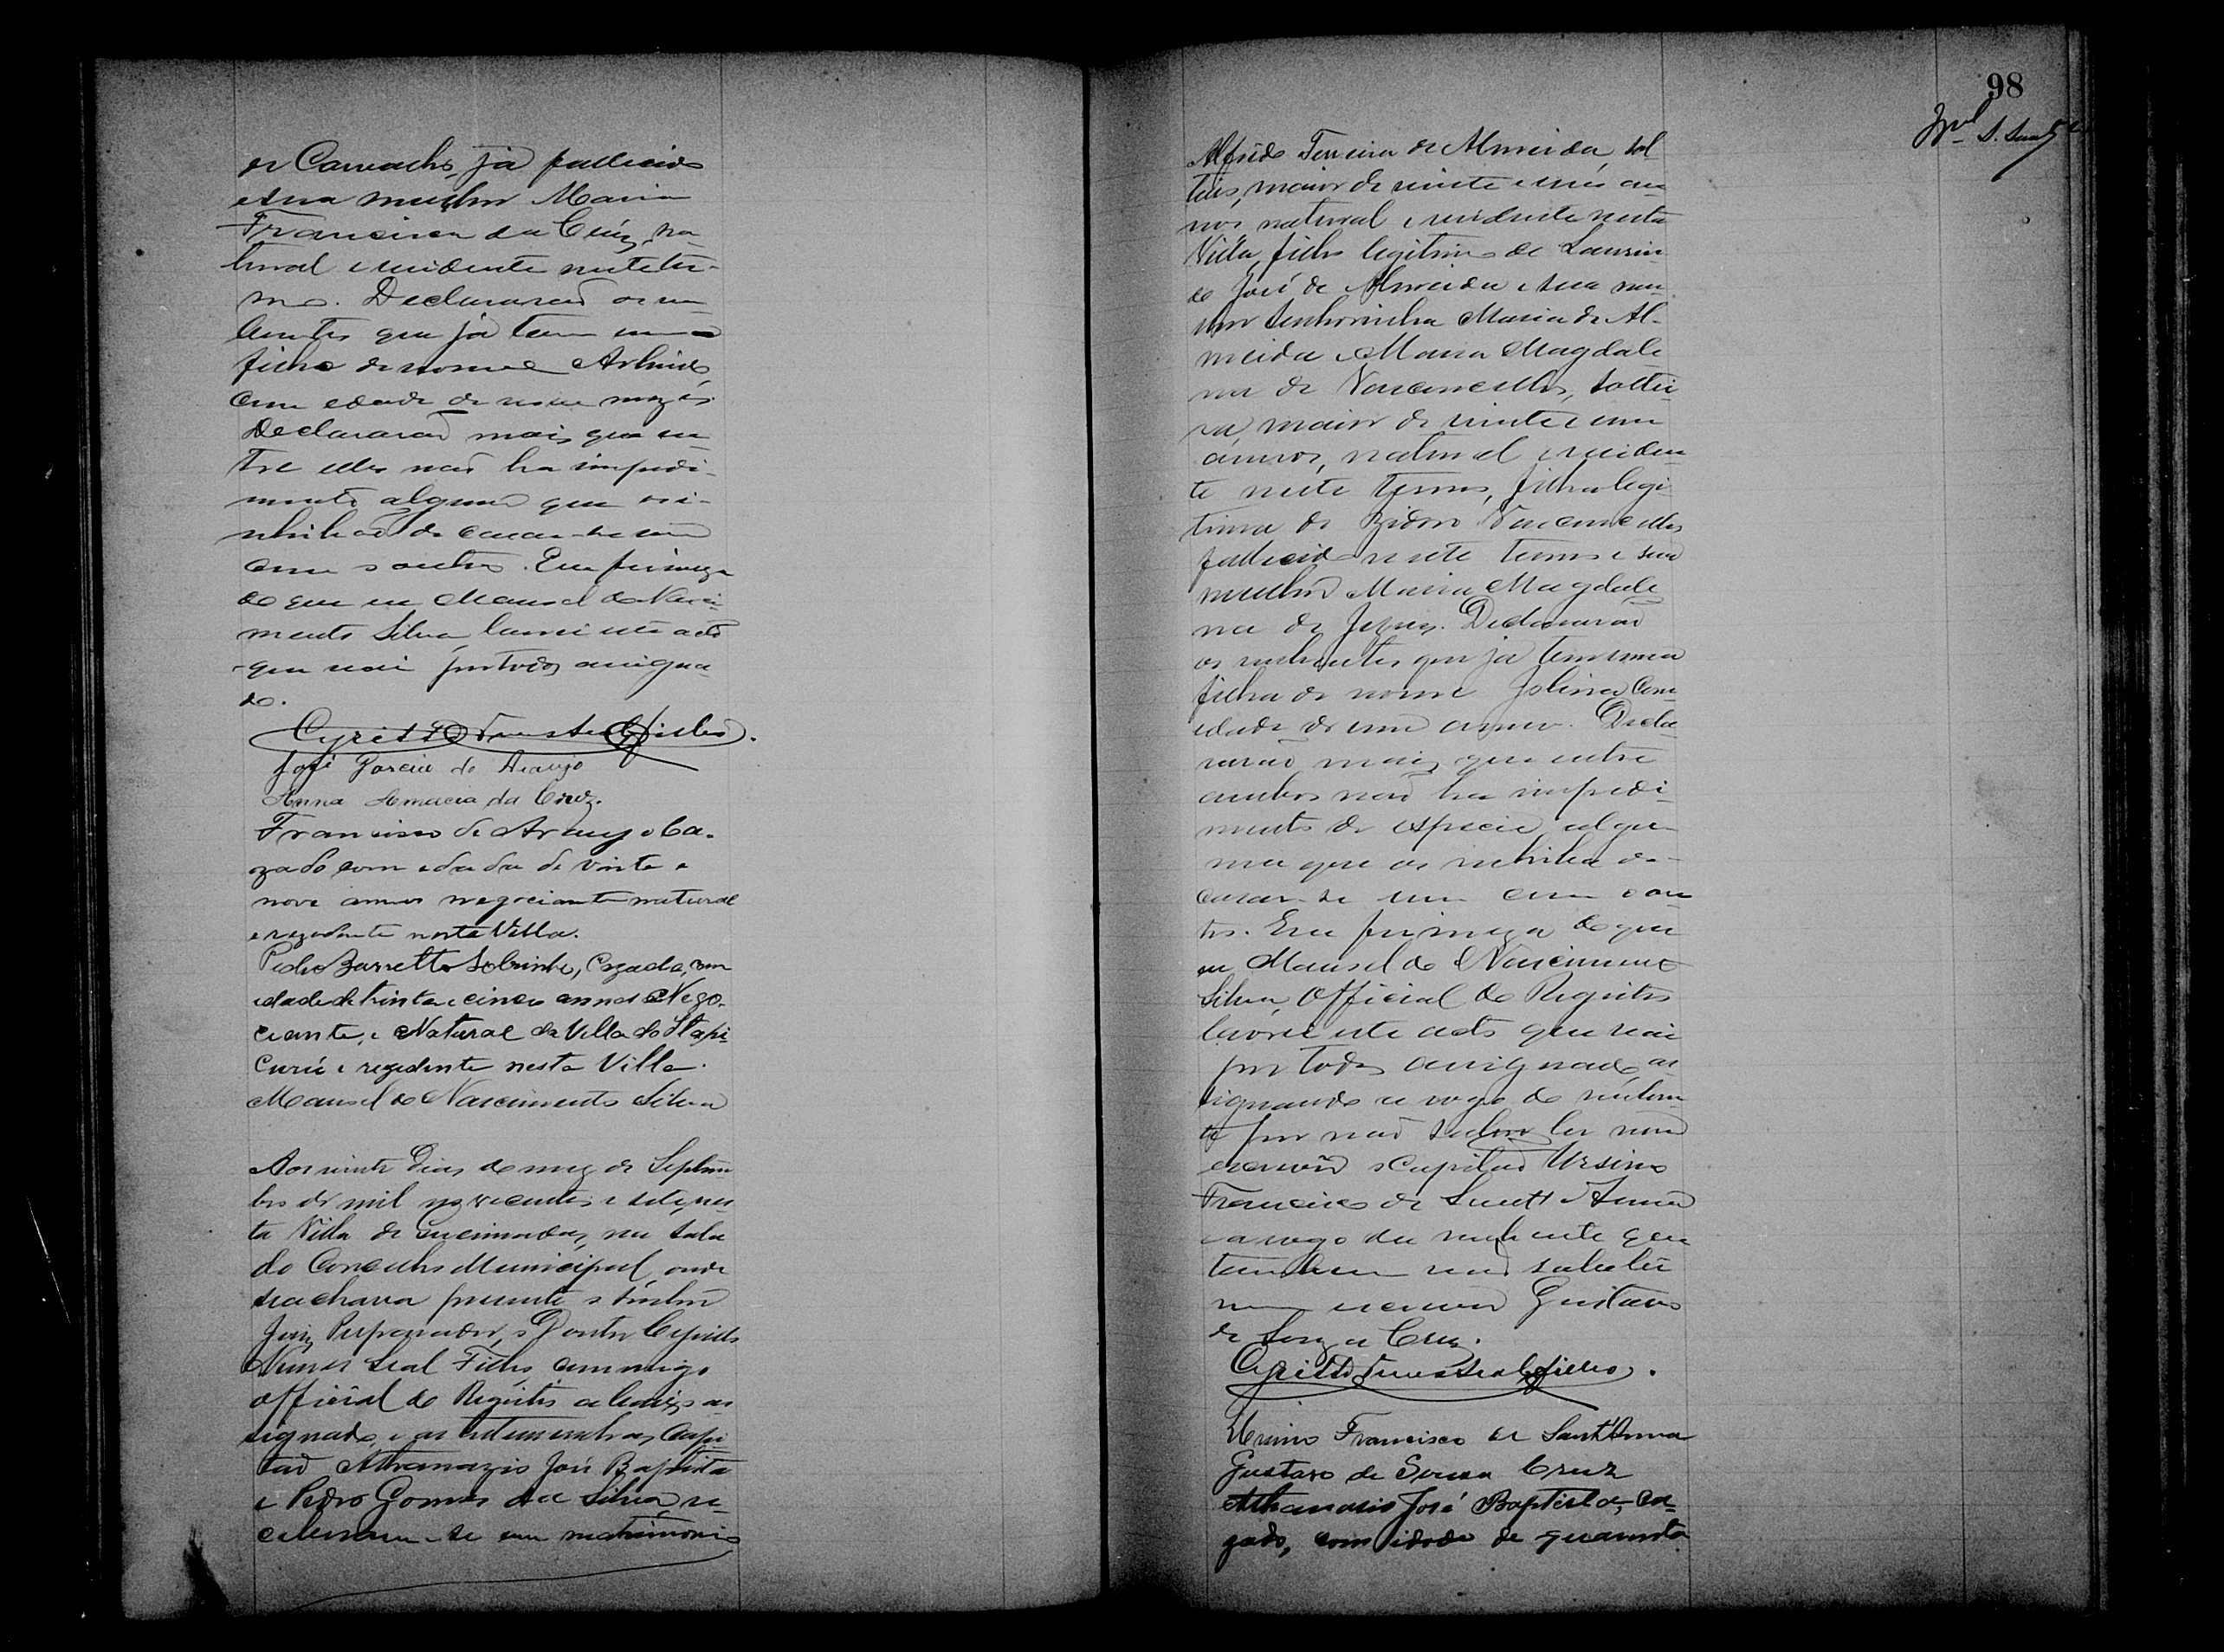 de Carvalho, já fallecido
e sua mulher Maria
Francisca da Cruz, na-
tural e residente neste ter-
mo. Declararaõ os nu-
bentes que já tem um
filho de nome Arlindo,
com edade de nove mezes.
Declararaõ mais que en-
tre elles naõ ha impedi-
mento algum que os i-
nhibaõ de casar-se um
com o outro. Em firmeza
do que eu Manoel do Nasci-
mento Silva, lavrei este acto
que vai por todos assigna-
do.
Cyrillo Nunes Leal Filho.
José Garcia de Araujo
Anna Amacia da Cruz.
Francisco de Araujo Ca-
zado com edade de vinte e
nove annos negociante natural
e rezidente nesta Villa.
Pedro Barretto Sobrinho, Cazado, com
idade de trinta e cinco annos Nego-
ciante, e Natural da Villa do Itapi-
curú e rezidente nesta Villa.
Manoel do Nascimento Silva
Aos vinte dias do mez de Septem-
bro de mil novecentos e sete, nes-
ta Villa de Queimadas, na sala
do Conselho Municipal, onde
se achava presente o Senhor
Juiz Preparador, o Doutor Cyrillo
Nunes Leal Filho, commigo
official do Registro abaixo as-
signado, e as testemunhas Capi-
taõ Athanazio José Baptista
e Pedro Gomes da Silva, re-
ceberam-se em matrimonio
98
Alfredo Ferreira de Almeida, sol-
teiro, maior de vinte e um an-
nos, natural e residente nesta
Villa, filho legitimo de Laurin-
do José de Almeida e sua mu-
lher Senhorinha Maria de Al-
meida e Maria Magdale-
na de Vasconcellos, soltei-
ra, maior de vinte e um
annos, natural e residen-
te neste termo, filha legi-
tima de Izidoro Vasconcellos
fallecido neste termo e sua
mulher Maria Magdale-
na de Jezus. Declararaõ
os nubentes que já tem uma
filha de nome Jolina com
edade de um anno. Decla-
raraõ mais que entre
ambos naõ ha impedi-
mento de especie algu-
ma que os inhiba de
casar-se um com o ou-
tro. Em firmeza do que
eu Manoel do Nascimento
Silva, Official do Registro
lavrei este acto que vai
por todos assignado, as-
signando a rogo do nuben-
te por naõ saber ler nem
escrever o Capitaõ Ursino
Francisco de Sant'Anna
e a rogo da nubente que
tambem naõ sabe ler
nem escrever Gustavo
de Souza Cruz.
Cyrillo Nunes Leal Filho.
Ursino Francisco de Sant'Anna
Gustavo de Souza Cruz
Athanasio José Baptista, ca-
zado, com idade de quarenta